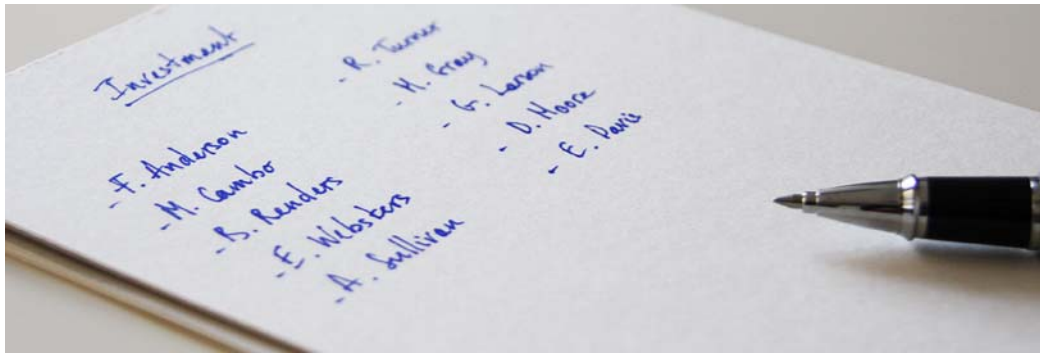 Investment
- F. Anderson
- M. Cambo
- B. Renders
- E. Websters
- A. Sullivan
- R. Turner
- M. Gray
- G. Larson
- D. Moore
- E. Davis